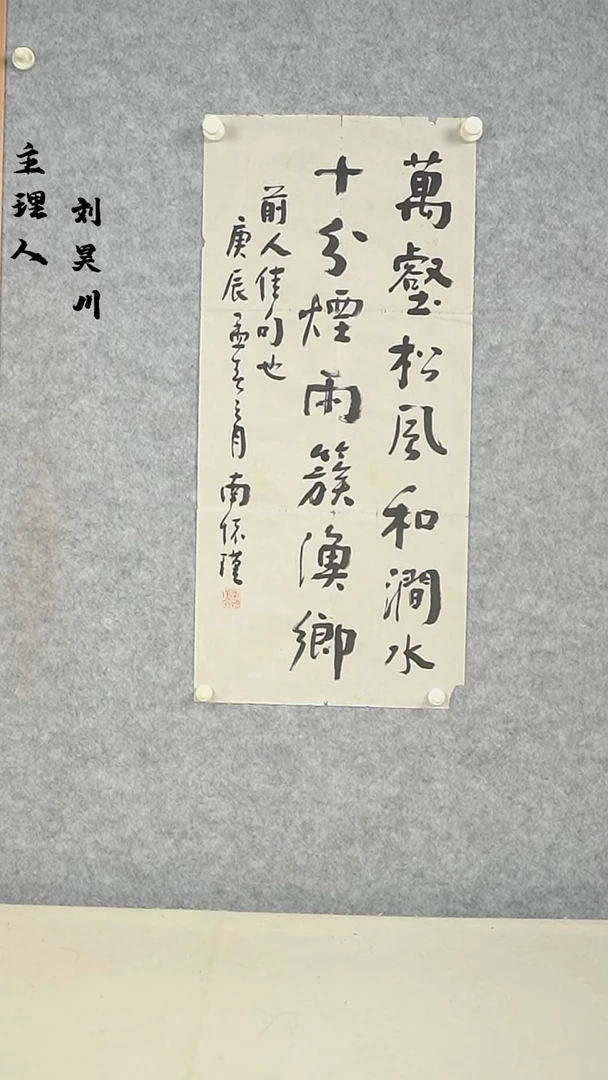 主理人
刘昊川
萬壑松風和澗水
十分煙雨簇漁鄉
前人佳句也
庚辰孟春之月 南懷瑾